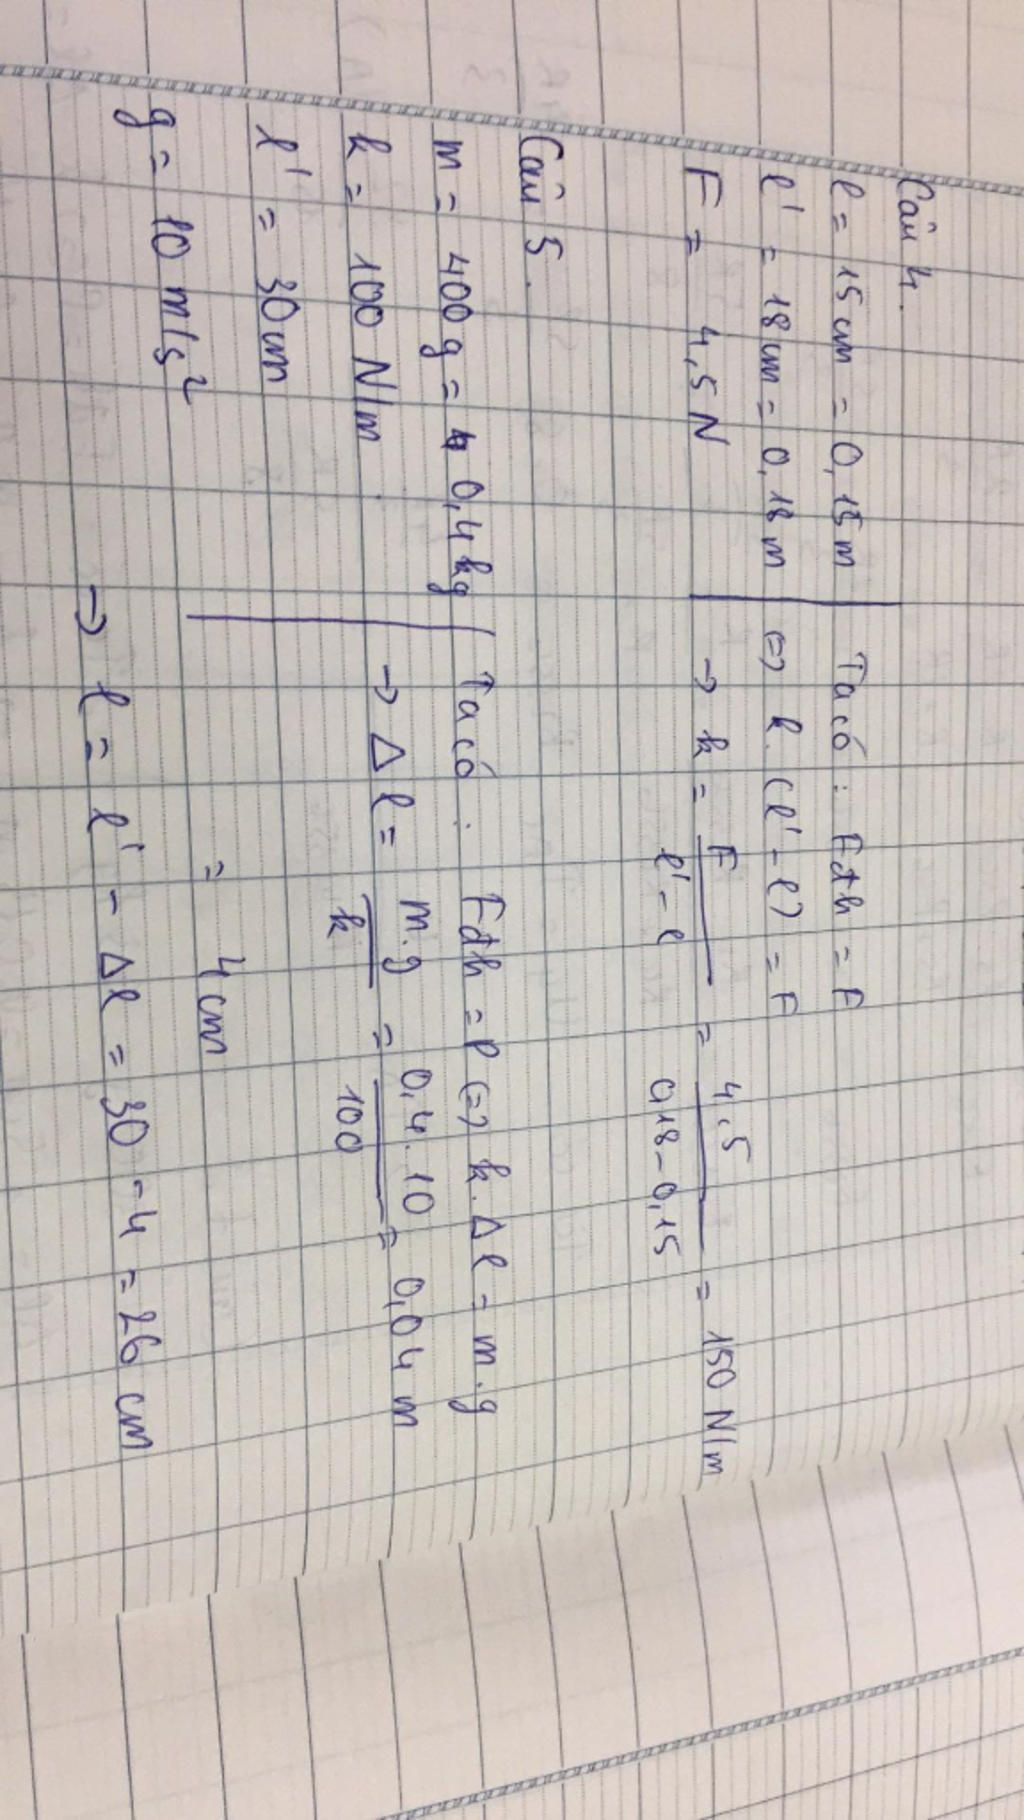 Câu 4.
l = 15 cm = 0,15 m
l' = 18 cm = 0,18 m
F = 4,5 N
Ta có : Fđh = F
⇔ k. (l' - l) = F
→ k = F / (l' - l) = 4,5 / (0,18 - 0,15) = 150 N/m
Câu 5.
m = 400 g = 0,4 kg
k = 100 N/m
l' = 30 cm
g = 10 m/s²
Ta có : Fđh = P ⇔ k. Δl = m.g
→ Δl = m.g / k = 0,4. 10 / 100 = 0,04 m
= 4 cm
→ l = l' - Δl = 30 - 4 = 26 cm